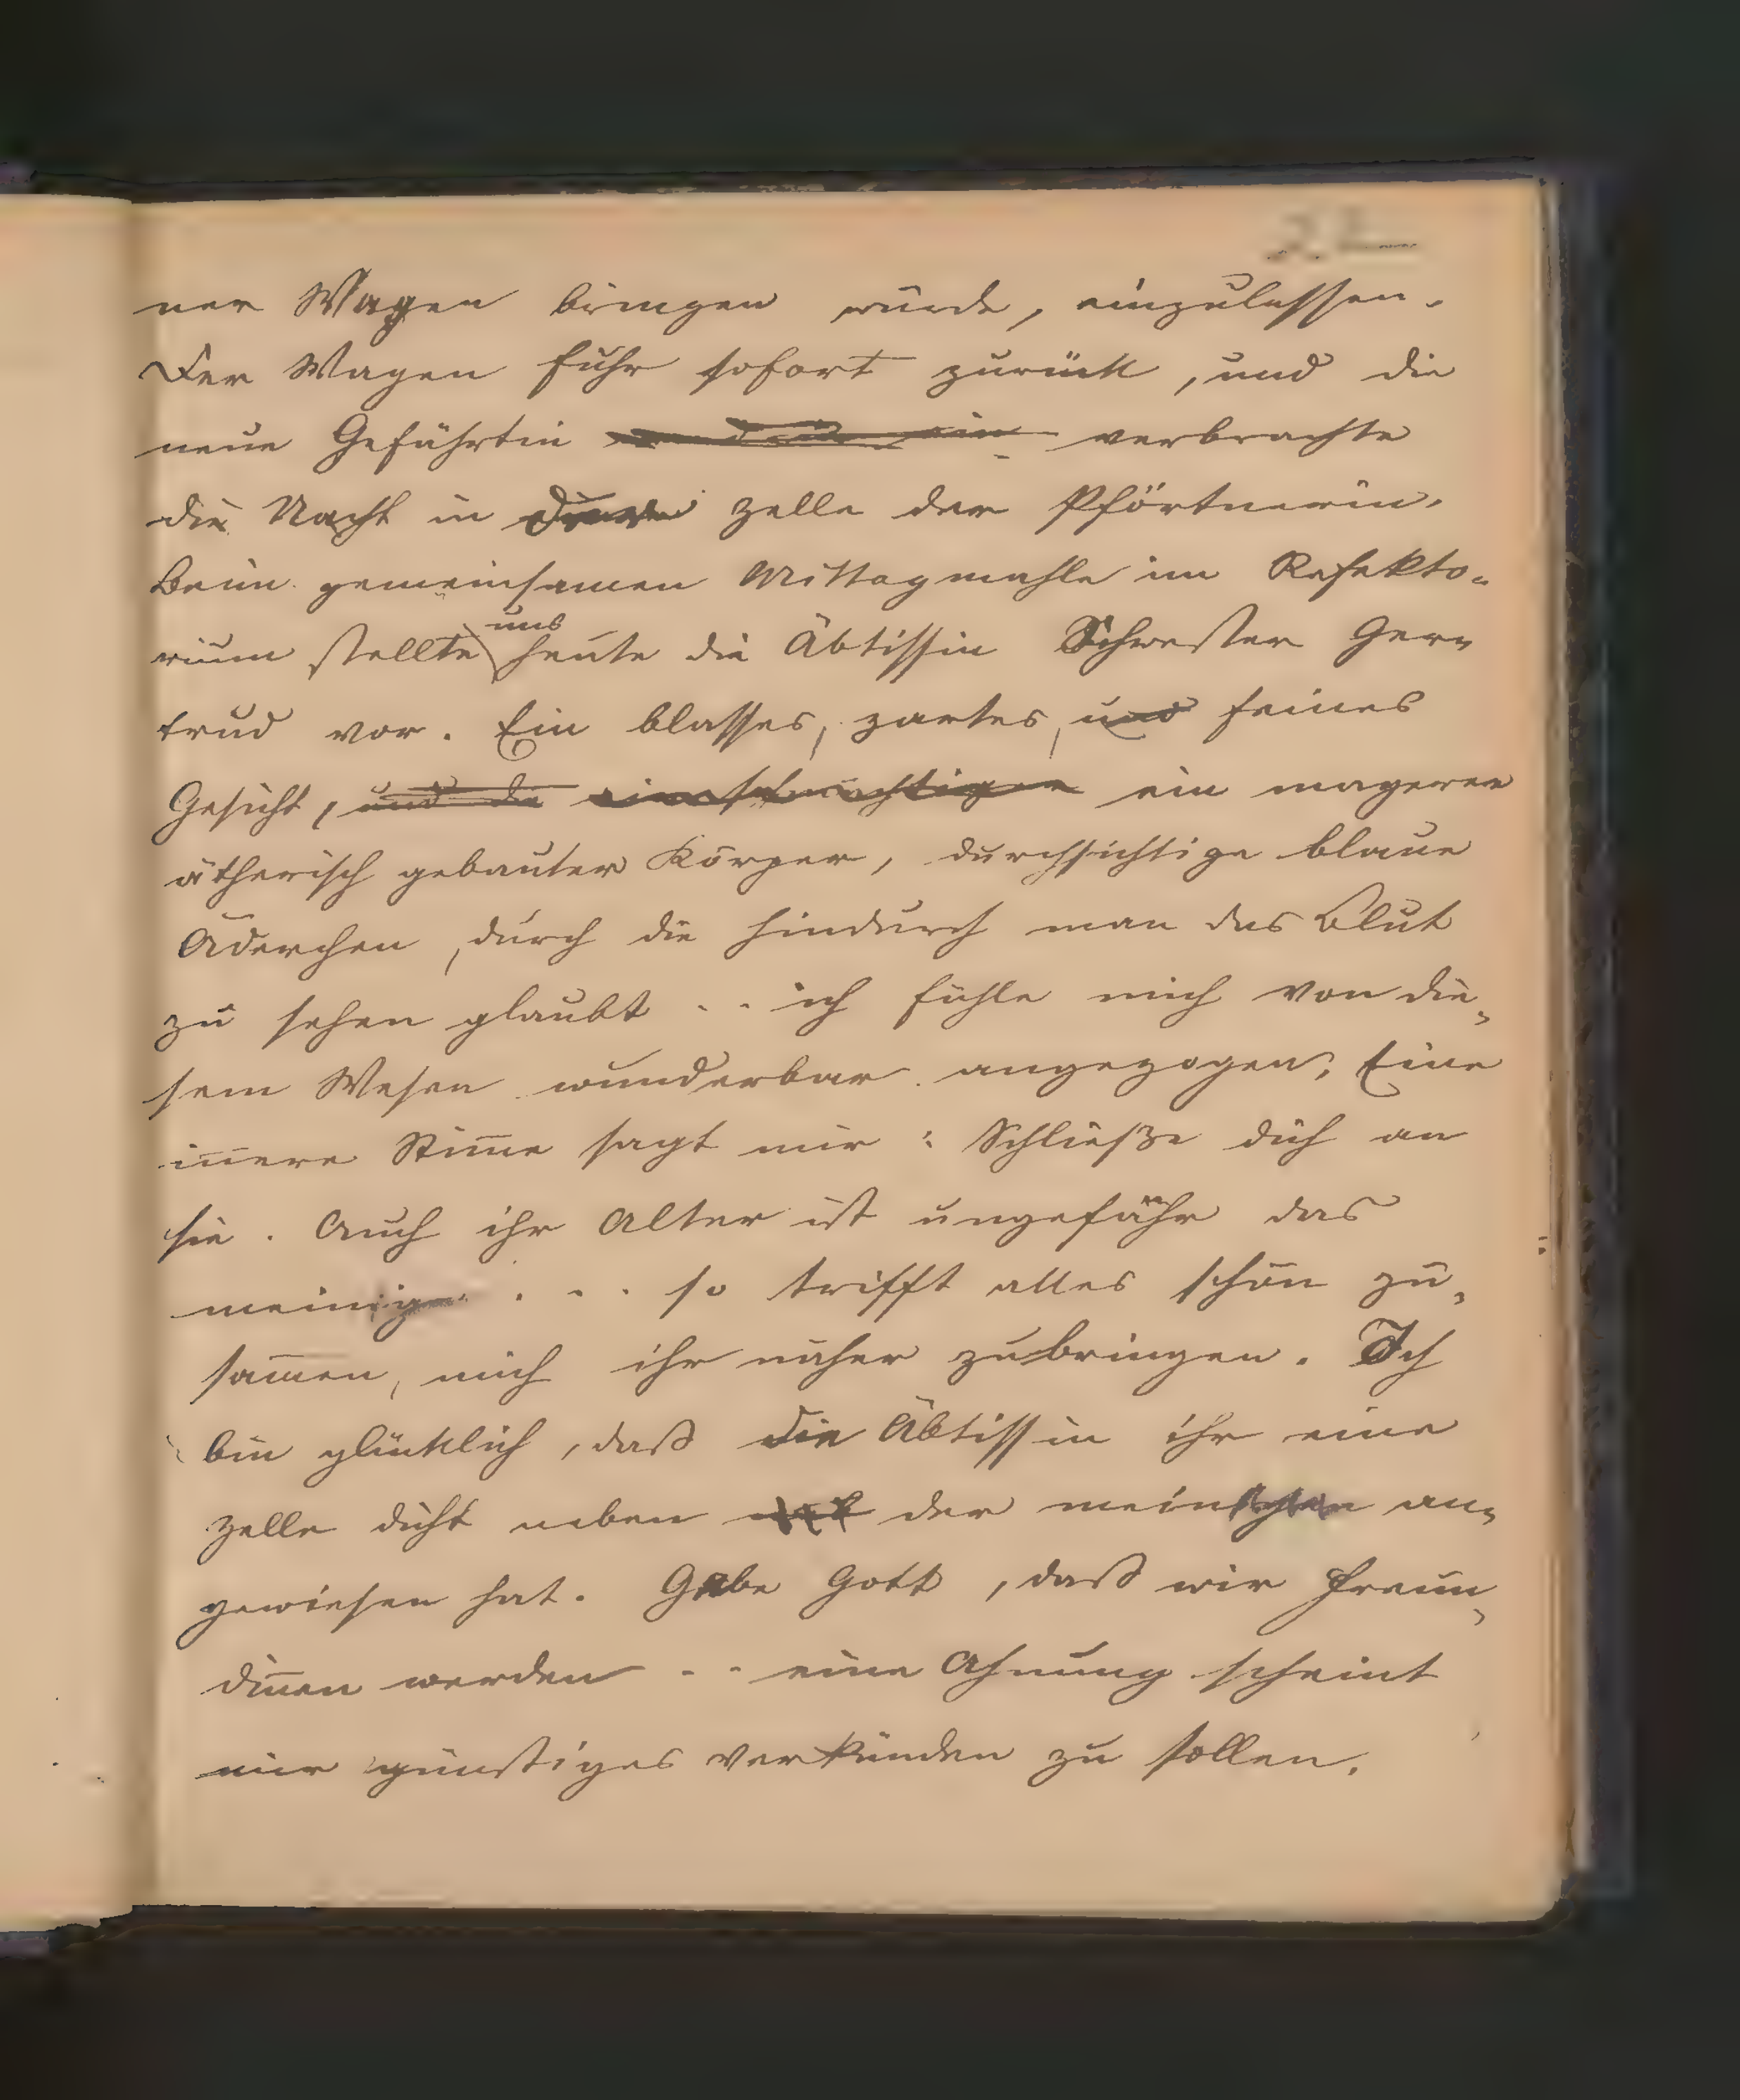 ner Wagen bringen würde, einzulassen.
Der Wagen fuhr sofort zurück, und die
neue Gefährtin verbrachte
die Nacht in der Zelle der Pförtnerin.
Beim gemeinsamen Mittagmahle im Refekto-
uns
rium stellte heute die Äbtissin Schwester Ger-
trud vor. Ein blasses, zartes, und feines
Gesicht, und die ein mageren
ätherisch gebauter Körper, durchsichtige blaue
Äderchen, durch die hindurch man das Blut
zu sehen glaubt .. ich fühle mich von die-
sem Wesen wunderbar angezogen; Eine
iñere Stim̄e sagt mir: Schließe dich an
sie. Auch ihr Alter ist ungefähr das
meinige . . . so trifft alles schön zu-
sam̄en, mich ihr näher zubringen. Ich
bin glücklich, daß die Äbtissin ihr eine
Zelle dicht neben der meinigen an-
gewiesen hat. Gebe Gott, daß wir Freun-
diñen werden .. eine Ahnung scheint
mir günstiges verkünden zu sollen.